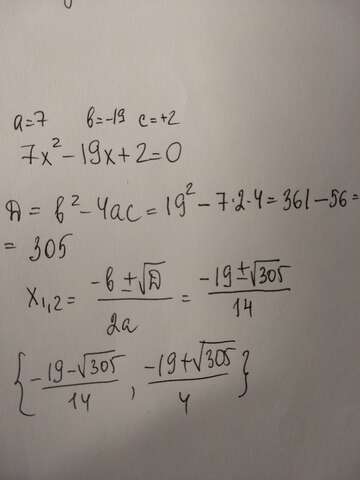 a=7 в=-19 c=+2
7x²-19x+2=0
D = в²-4ac = 19²-7·2·4=361-56=
= 305
x₁,₂ = (-в±√D)/(2a) = (-19±√305)/14
{(-19-√305)/14, (-19+√305)/4}